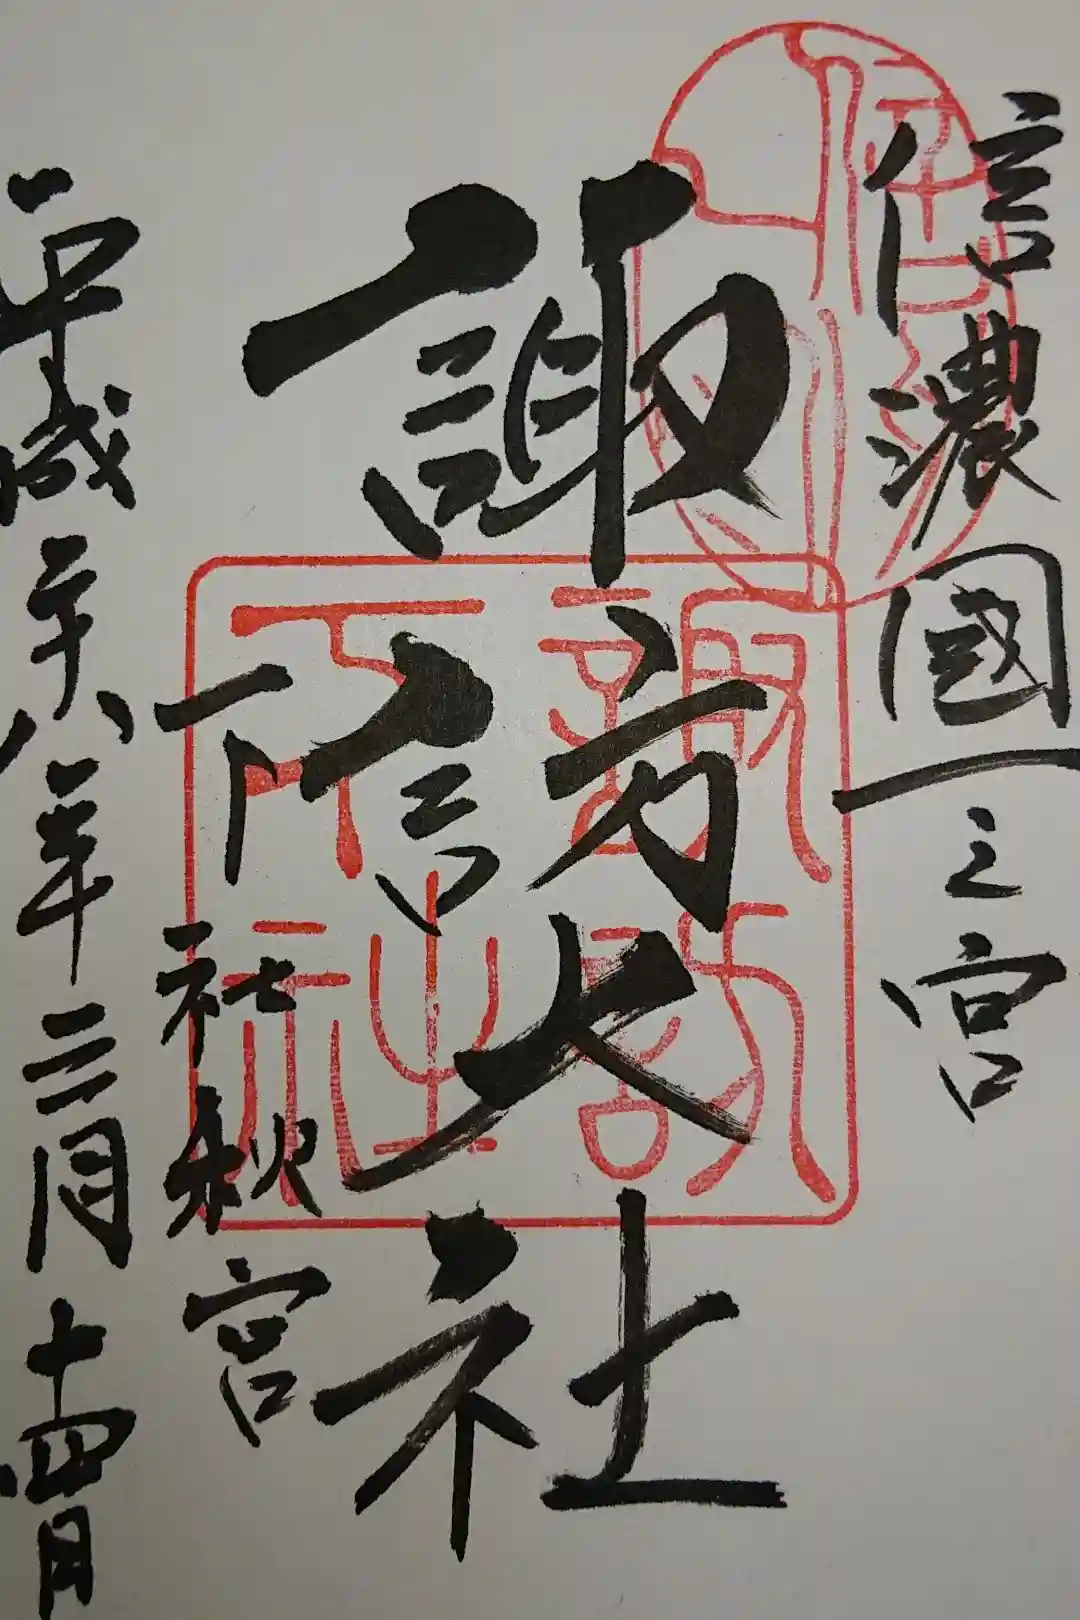 信濃國一之宮
諏訪大社
下社秋宮
平成二十八年三月十四日
諏訪下社